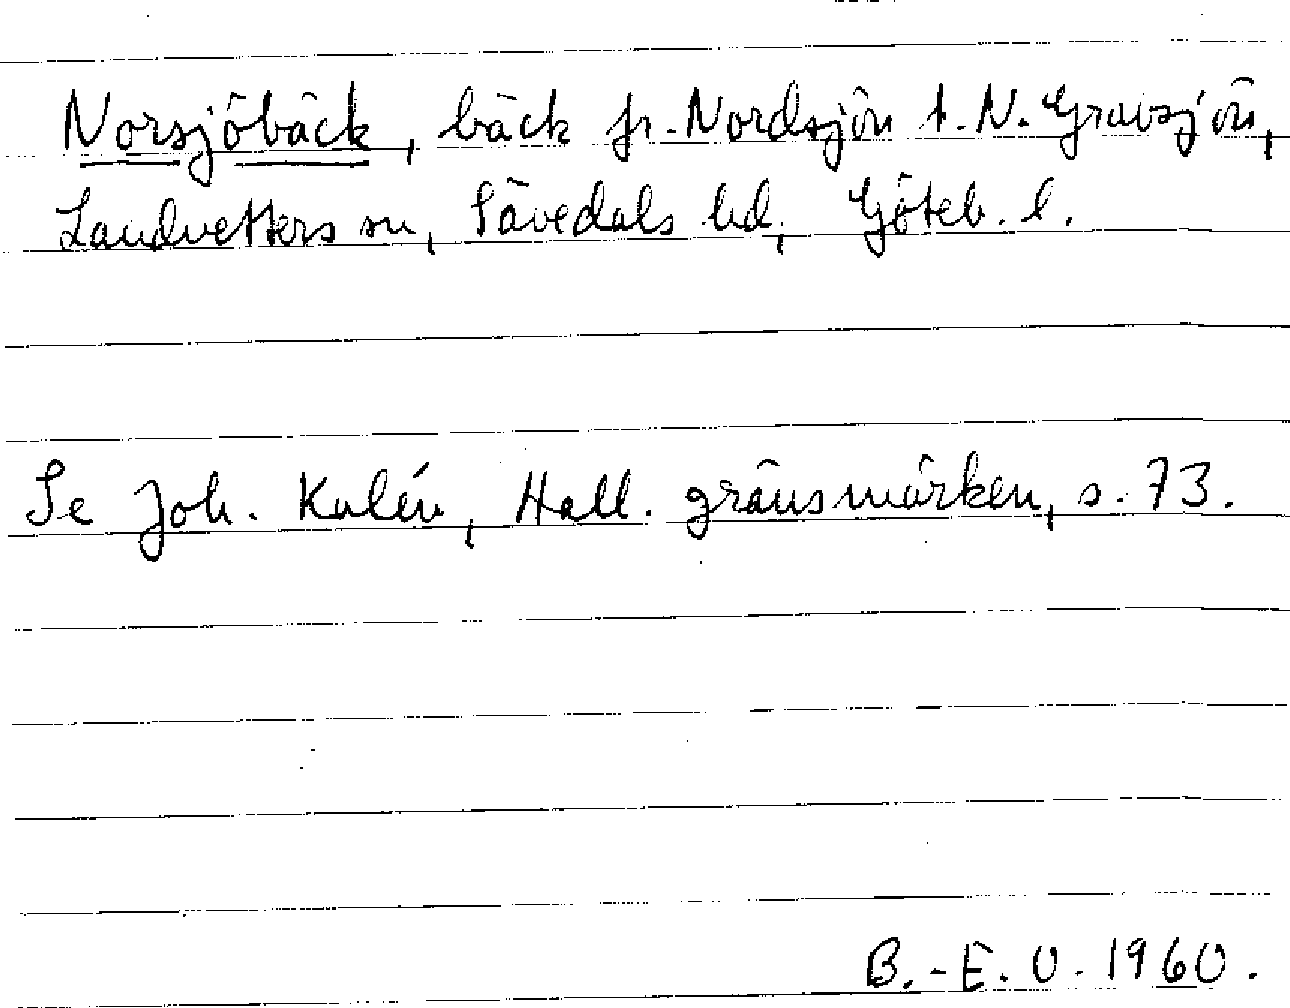 Norsjöbäck, bäck fr. Nordsjön t. N. Gravsjön,
Landvetters sn, Sävedals hd, Göteb. l.
Se Joh. Kalén, Hall. gränsmärken, s. 73.
B.-E. O. 1960.